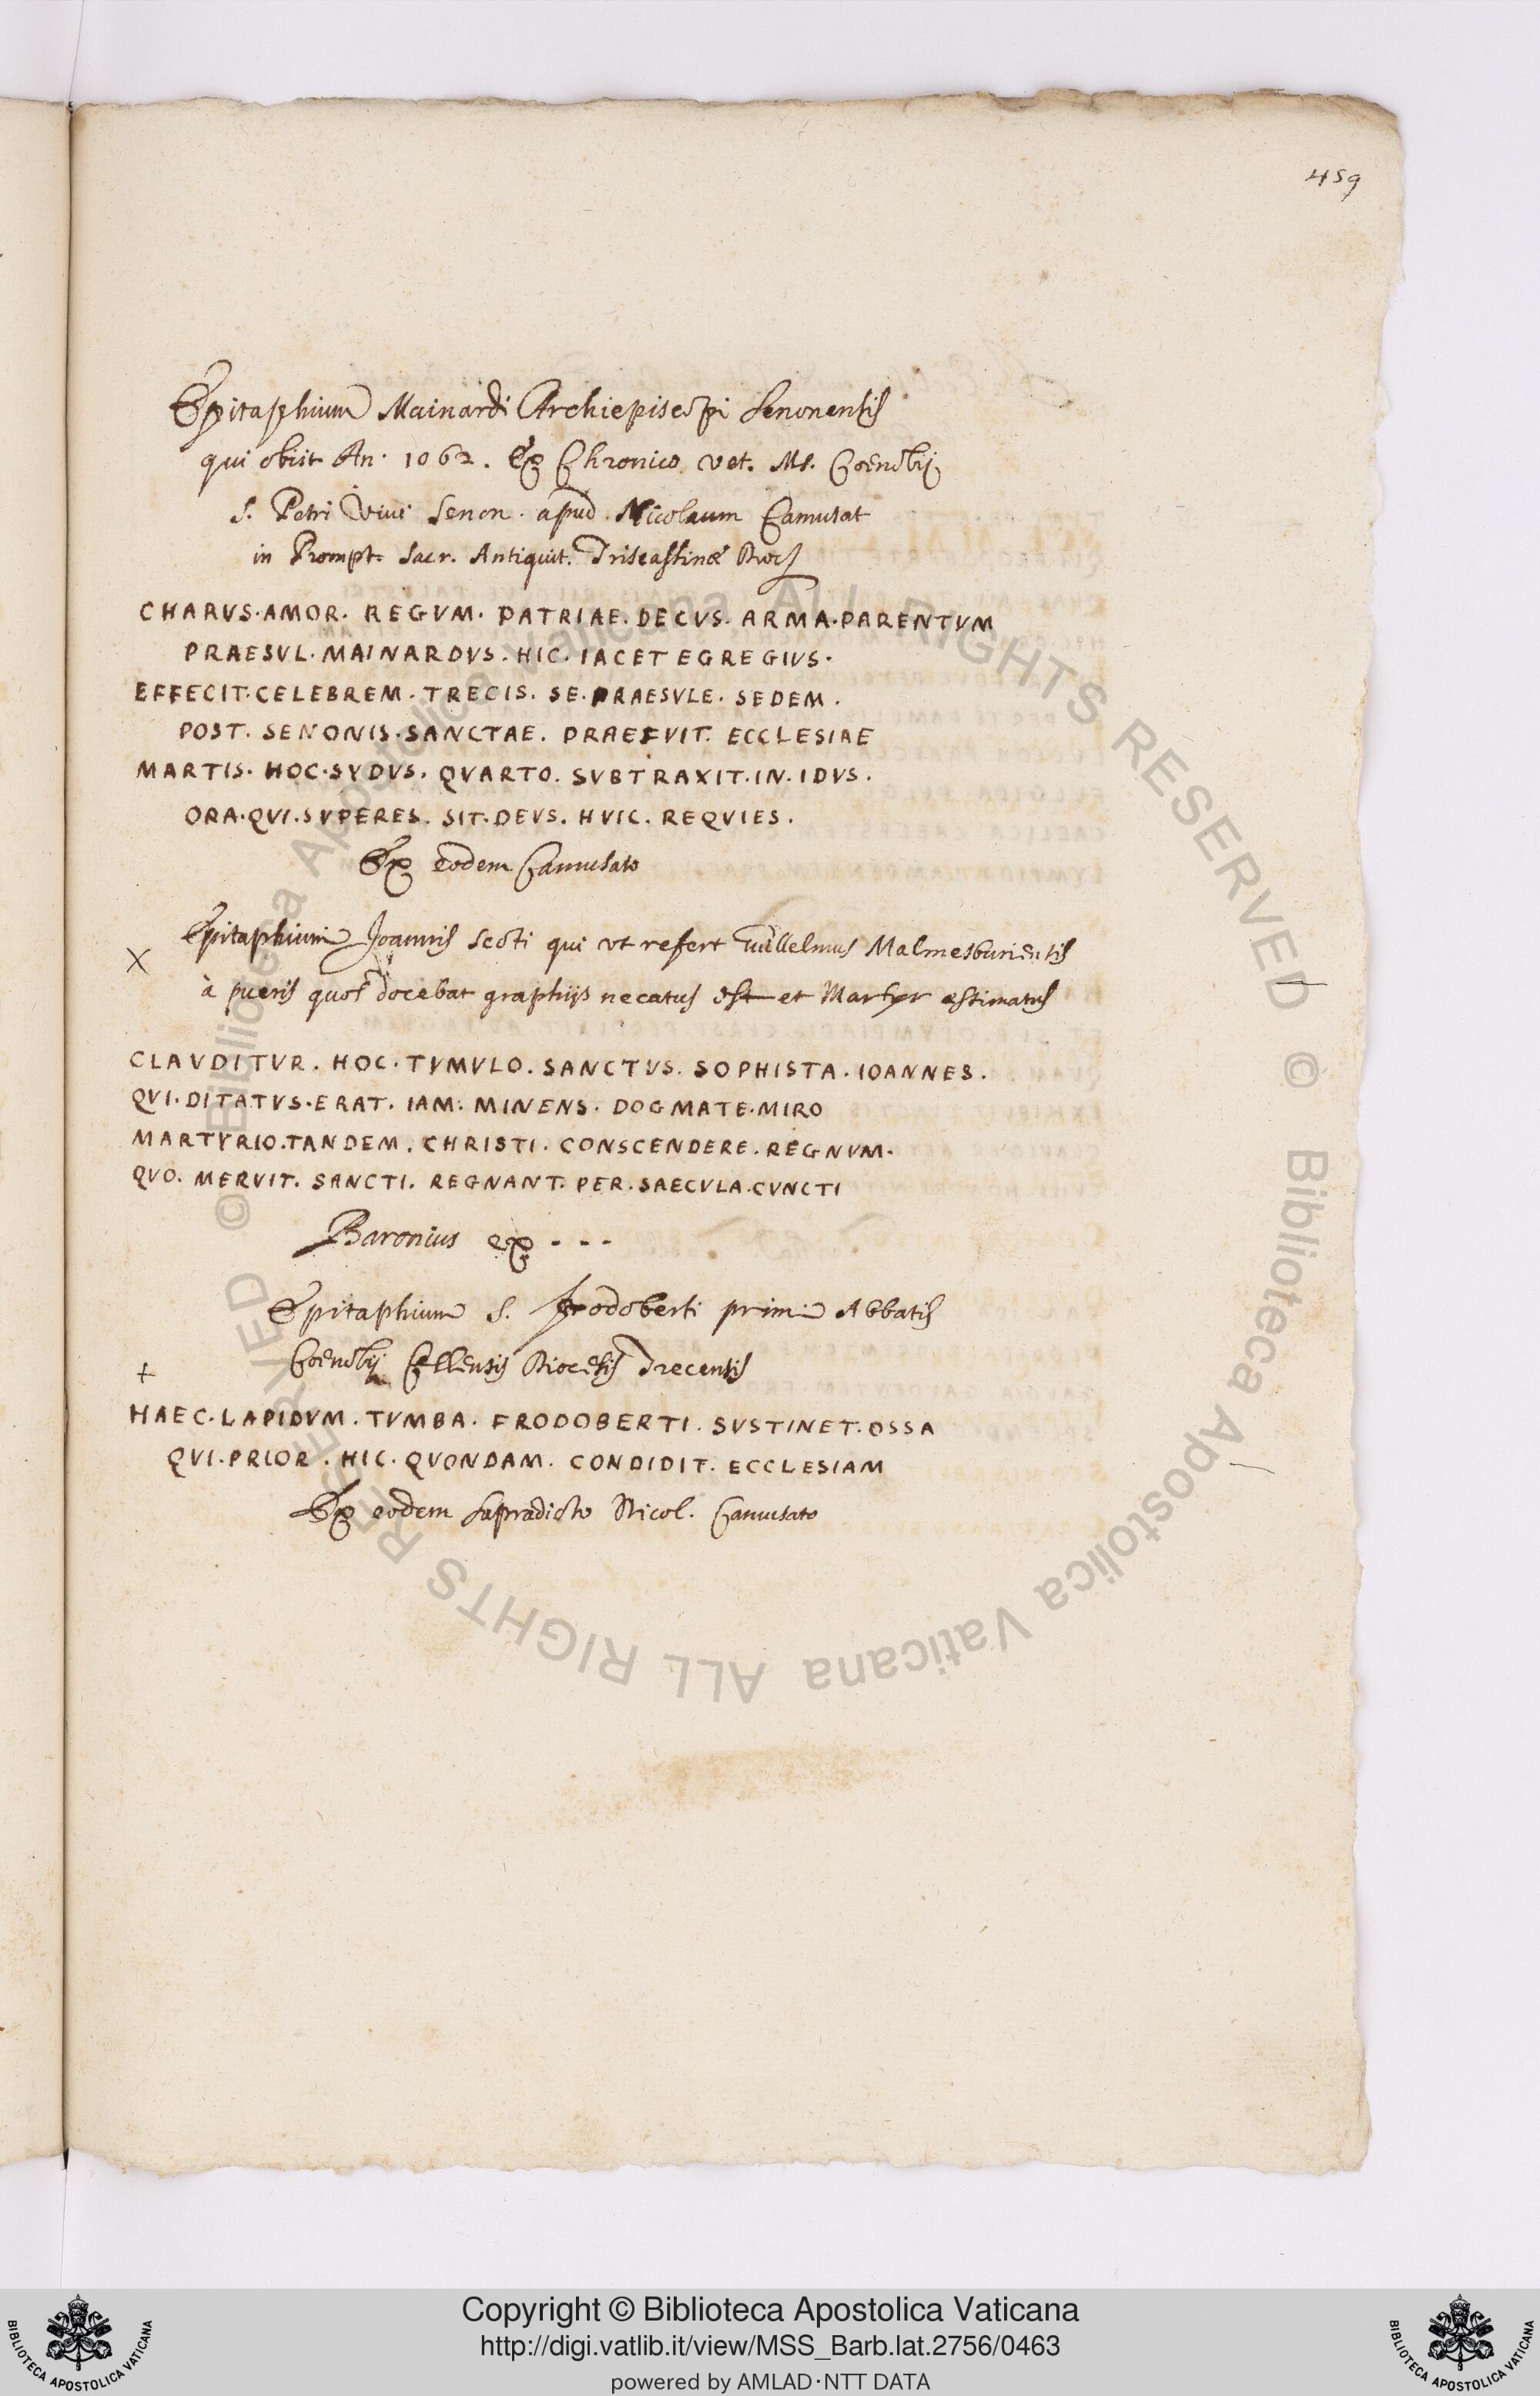 459
Epitaphium Mainardi Archiepiscopi Senonensis
qui obiit An. 1062. Ex Chronico vet. Ms. Coenobij
S. Petri vivi Senon. apud Nicolaum Camusat
in Prompt. Sacr. Antiquit. Tricassinae Dioc
CHARVS·AMOR. REGVM. PATRIAE. DECVS. ARMA. PARENTVM
PRAESVL. MAINARDVS. HIC. IACET EGREGIVS.
EFFECIT. CELEBREM. TRECIS. SE. PRAESVLE. SEDEM.
POST. SENONIS. SANCTAE. PRAEFVIT. ECCLESIAE
MARTIS. HOC. SYDVS. QVARTO. SVBTRAXIT. IN. IDVS.
ORA. QVI. SVPERES. SIT. DEVS. HVIC. REQVIES.
Ex eodem Camusato
X Epitaphium Joannis Scoti qui ut refert Willelmus Malmesburiensis
à pueris quos docebat graphijs necatus est et Martyr estimatus
CLAVDITVR. HOC. TVMVLO. SANCTVS. SOPHISTA. IOANNES.
QVI. DITATVS. ERAT. IAM. MINENS. DOGMATE. MIRO
MARTYRIO. TANDEM. CHRISTI. CONSCENDERE. REGNVM.
QVO. MERVIT. SANCTI. REGNANT. PER. SAECVLA. CVNCTI
Baronius ex - - -
Epitaphium S. Frodoberti primi Abbatis
+ Coenobij Cellensis Diocesis Trecensis
HAEC. LAPIDVM. TVMBA. FRODOBERTI. SVSTINET. OSSA
QVI. PRIOR. HIC. QVONDAM. CONDIDIT. ECCLESIAM
Ex eodem supradicto Nicol. Camusato
© Biblioteca Apostolica Vaticana ALL RIGHTS RESERVED © Biblioteca Apostolica Vaticana ALL RIGHTS RESERVED
BIBLIOTECA APOSTOLICA VATICANA
Copyright © Biblioteca Apostolica Vaticana
http://digi.vatlib.it/view/MSS_Barb.lat.2756/0463
powered by AMLAD·NTT DATA
BIBLIOTECA APOSTOLICA VATICANA